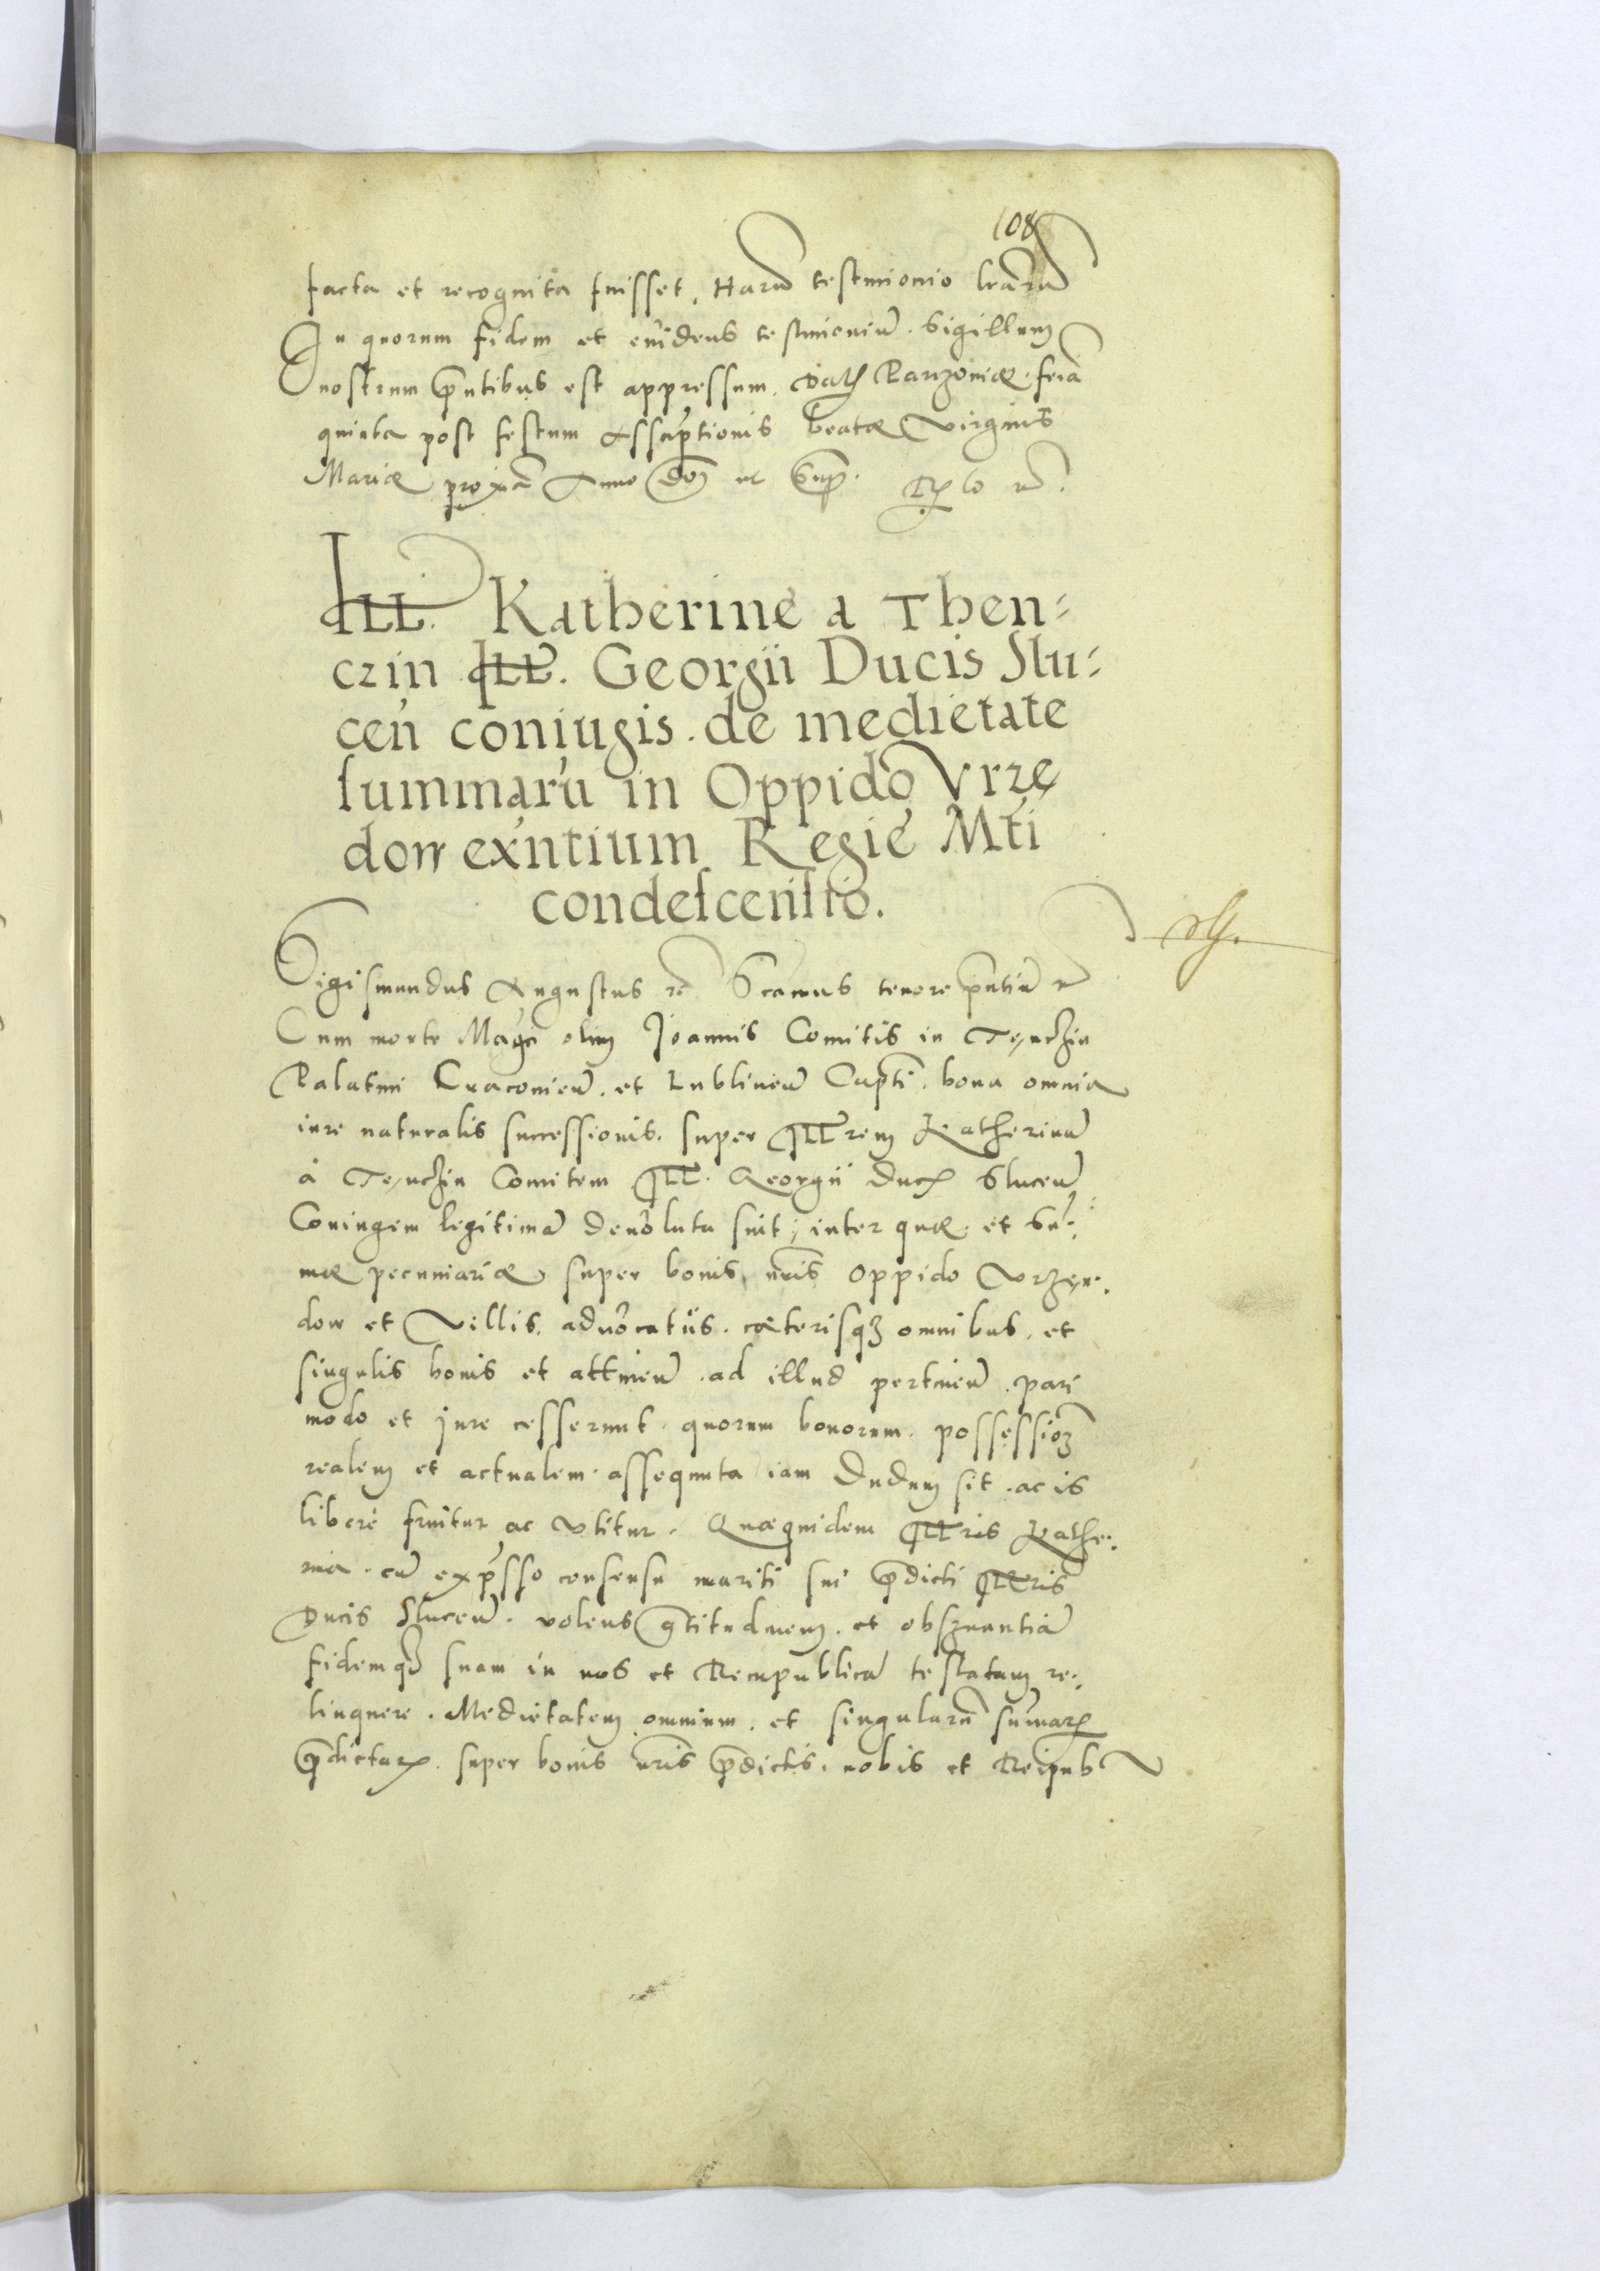 108
facta et recognita fuisset, Harũ testimonio lrarũ
In quorum fidem et euidens testimoniũ. Sigillum
nostrum pñtibus est appressum. Dat Parczouiæ. feria
quinta post festum Assũptionis beatæ Virginis
Mariæ proxiã Anno Dom̃ ut Supͣ.
Ill. Katherine a Then⸗
czin Ill. Georgii Ducis Slu⸗
cen̄ coniugis. de medietate
summarũ in Oppido Vrzę
dow exñtium Regie Mti
condescensio.
Sigismundus Augustus rc̃ Scamus tenore pñtiũ rc̃
Cum morte Magci olim Joannis Comitis in Tenczin
Palatini Cracouien̄. et Lublinen̄ Capti. bona omnia
iure naturalis successionis. super Illrem Katherinã
à Tenczin Comitem Ill. Georgii Ducꝭ Slucen̄
Coniugem legitimã deuoluta sint, inter quæ. et Sũ⸗
mæ pecuniariæ super bonis nr̃is Oppido Vrzęn⸗
dow et Villis. aduocatiis. cæterisqꝫ omnibus. et
singulis bonis et attinen̄. ad illud pertinen̄. pari
modo et jure cesserunt. quorum bonorum. possessioꝫ
realem et actualem. assequuta iam dudum sit. ac is
liberè fruitur ac vtitur. Quæquidem Illris Kathe⸗
rina. cũ exp̃sso consensu mariti sui p̃dicti Illris
Ducis Slucen̄. volens g̃titudinem. et obseruantiã
fidemqꝫ suam in nos et Rempublicã testatam re⸗
linquere. Medietatem omnium. et singularũ sũmarꝝ
p̃dictarꝝ. super bonis nr̃is p̃dictis. nobis et Reipub